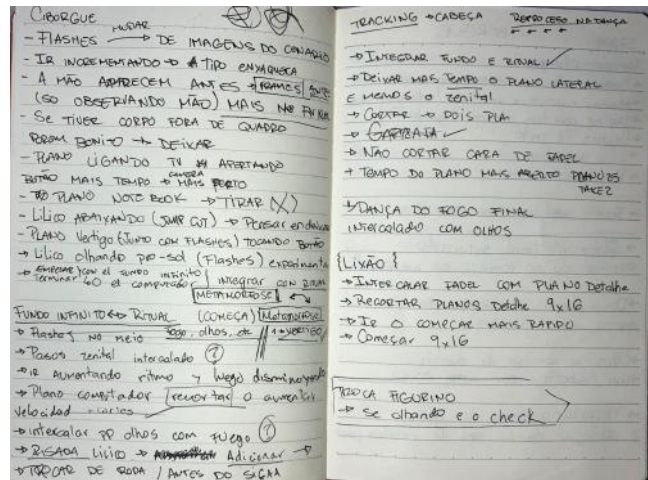 CIBORGUE
MUDAR
- FLASHES → DE IMAGENS DO CENARIO
- IR INCREMENTANDO → A TIPO ENXAQUECA
- A MÃO APARECEM ANTES → FRAMES ANTES
(SO OBSERVANDO MÃO) MAIS NO FINAL
- SE TIVER CORPO FORA DE QUADRO
PORÉM BONITO → DEIXAR
- PLANO LIGANDO TV APERTANDO
BOTÃO MAIS TEMPO → CAMERA MAIS PERTO
- PLANO NOTEBOOK → TIRAR (X)
- Lilico ABAIXANDO (JUMP CUT) → Pensar en
- PLANO Vertigo (JUNTO COM FLASHES) TOCANDO BOTÃO
→ Lilico olhando pro-sol (Flashes)
→ EMPEZAR con el FUNDO infinito
terminar el computador / integrar con RITUAL
METAMORFOSE
FUNDO INFINITO ↔ RITUAL (COMEÇA) Metamorfose
→ Flashes NO MEIO fogo, olhos, etc // 1→VERTIGO
→ Pasos zenital intercalado (?)
→ IR AUMENTANDO ritmo y luego disminuyendo
→ Plano computador recortar o aumentar
velocidad
→ intercalar PP olhos com FUEGO (?)
→ RISADA Lilico → Adicionar →
→ TROCAR DE RODA / ANTES DO
TRACKING → CABEÇA RETROCESO NA DANÇA
← ← ← ←
→ INTEGRAR FUNDO E RITUAL ✓
→ DEIXAR MAIS TEMPO O PLANO LATERAL
E MENOS O zenital
→ CORTAR → DOIS PLA
→ ✓
→ NÃO CORTAR CARA DE FADEL
+ TEMPO DO PLANO MAIS ABERTO PLANO 25
TAKE 2
→ DANÇA DO FOGO FINAL
INTERCALADO COM OLHOS
{LIXÃO}
→ INTERCALAR FADEL COM PLANO Detalhe
→ RECORTAR PLANOS Detalhe 9x16
→ IR O COMEÇAR MAIS RAPIDO
→ Começar 9x16
TROCA FIGURINO
→ Se olhando e o check